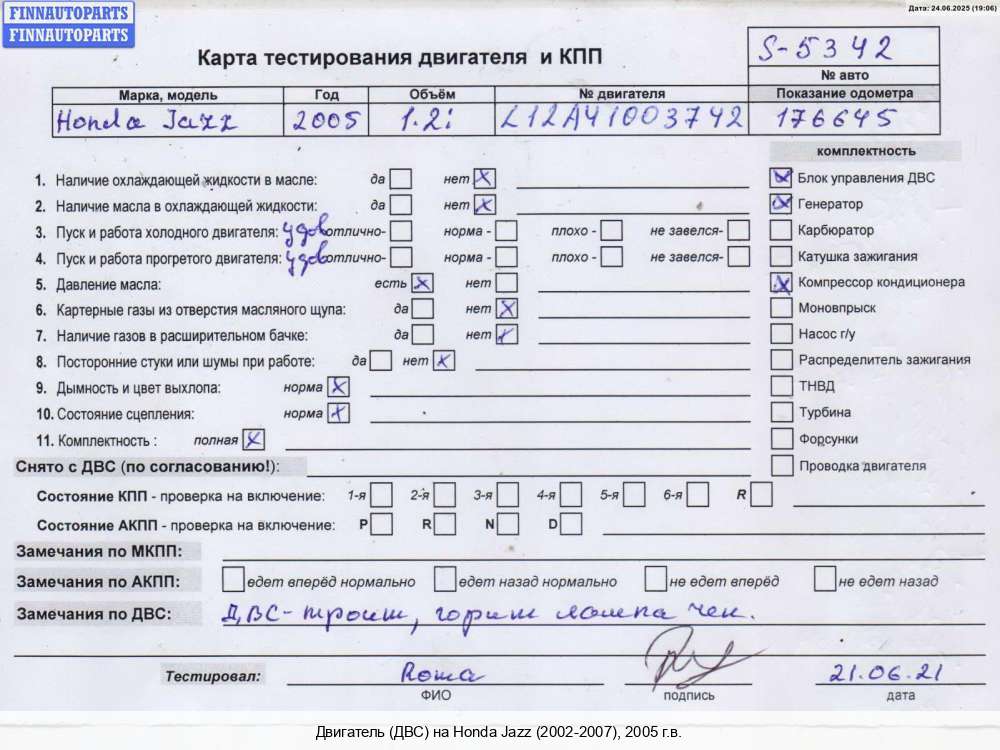 FINNAUTOPARTS
FINNAUTOPARTS
Дата: 24.06.2025 (19:06)
Карта тестирования двигателя и КПП
S-5342
№ авто
Марка, модель Год Объём № двигателя Показание одометра
Honda Jazz 2005 1.2i L12A41003742 176645
комплектность
1. Наличие охлаждающей жидкости в масле: да нет Блок управления ДВС
2. Наличие масла в охлаждающей жидкости: да нет Генератор
3. Пуск и работа холодного двигателя: удов отлично- норма - плохо - не завелся- Карбюратор
4. Пуск и работа прогретого двигателя: удов отлично- норма - плохо - не завелся- Катушка зажигания
5. Давление масла: есть нет Компрессор кондиционера
6. Картерные газы из отверстия масляного щупа: да нет Моновпрыск
7. Наличие газов в расширительном бачке: да нет Насос г/у
8. Посторонние стуки или шумы при работе: да нет Распределитель зажигания
9. Дымность и цвет выхлопа: норма ТНВД
10. Состояние сцепления: норма Турбина
11. Комплектность : полная Форсунки
Снято с ДВС (по согласованию!): Проводка двигателя
Состояние КПП - проверка на включение: 1-я 2-я 3-я 4-я 5-я 6-я R
Состояние АКПП - проверка на включение: P R N D
Замечания по МКПП:
Замечания по АКПП: едет вперёд нормально едет назад нормально не едет вперёд не едет назад
Замечания по ДВС: ДВС - троит, горит лампа чек.
Тестировал: Рома 21.06.21
ФИО подпись дата
Двигатель (ДВС) на Honda Jazz (2002-2007), 2005 г.в.